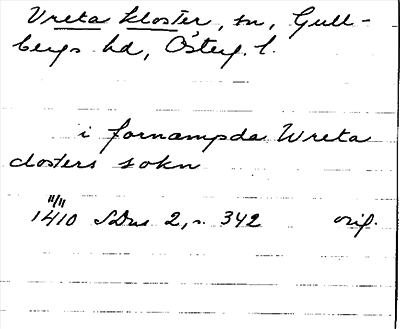 Vreta kloster, sn, Gull-
bergs hd, Österg. l.
i fornampda Wreta
closters sokn
11/11
1410 SDns 2, s. 342 orig.